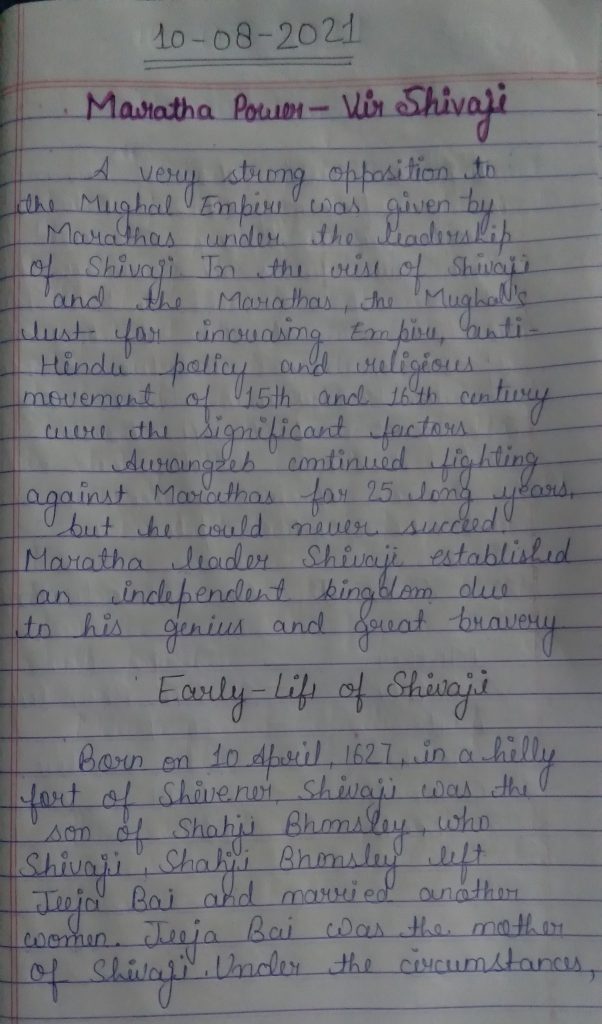 10-08-2021
Maratha Power - Vir Shivaji
A very strong opposition to
the Mughal Empire was given by
Marathas under the leadership
of Shivaji In the rise of Shivaji
and the Marathas, the Mughal's
lust for increasing Empire, anti-
Hindu policy and religious
movement of 15th and 16th century
were the significant factors
Aurangzeb continued fighting
against Marathas for 25 long years,
but he could never succeed
Maratha leader Shivaji established
an independent kingdom due
to his genius and great bravery
Early-Life of Shivaji
Born on 10 April, 1627, in a hilly
fort of Shivener, Shivaji was the
son of Shahji Bhonsley, who
Shivaji, Shahji Bhonsley left
Jeeja Bai and married another
women. Jeeja Bai was the mother
of Shivaji. Under the circumstances,